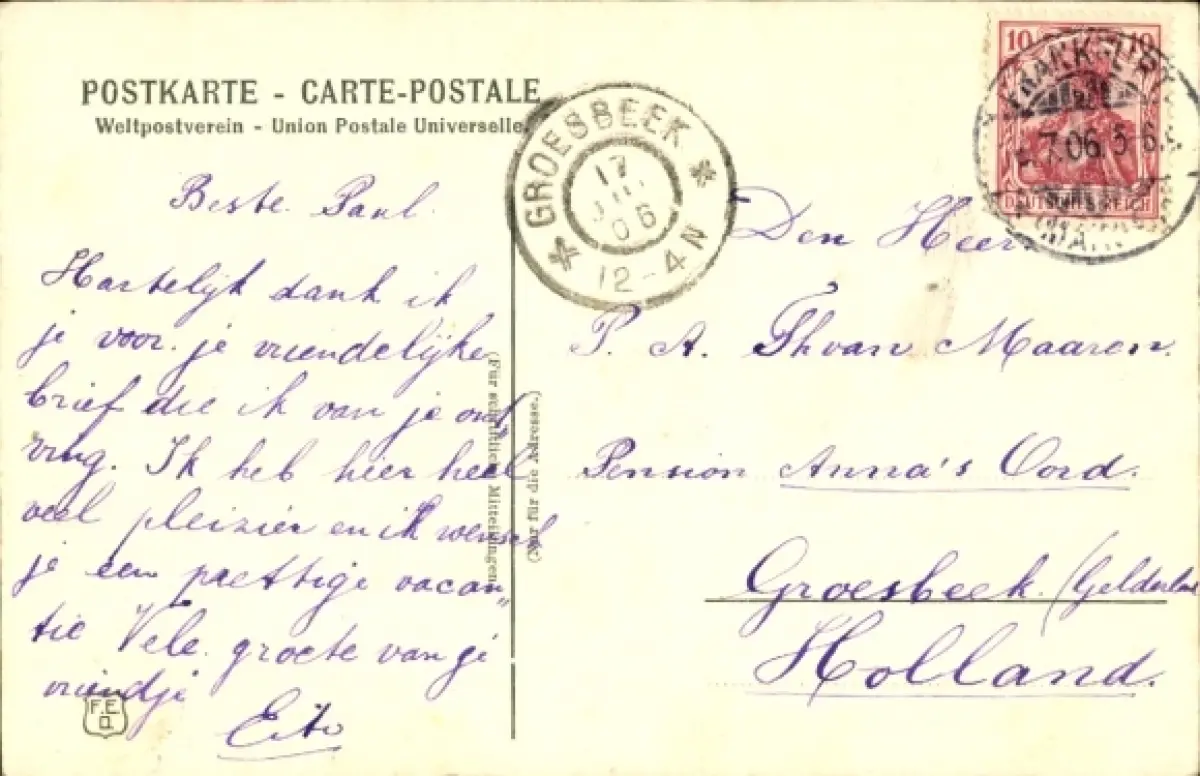 POSTKARTE - CARTE-POSTALE
Weltpostverein - Union Postale Universelle.
Beste Paul.
Hartelijk dank ik
je voor je vriendelijke
brief die ik van je ont„
ving. Ik heb hier heel
veel pleizier en ik wensch
je een prettige vacan„
tie Vele groete van je
vriendje
(Für schriftliche Mitteilungen)
(Nur für die Adresse.)
F.E.
D.
GROESBEEK
17
06
12-4N
10 10
DEUTSCHES REICH
7.06. 5-6
Den Heer
P. A. Th van Maaren.
Pension Anna's Oord.
Groesbeek. (Gelderland
Holland.